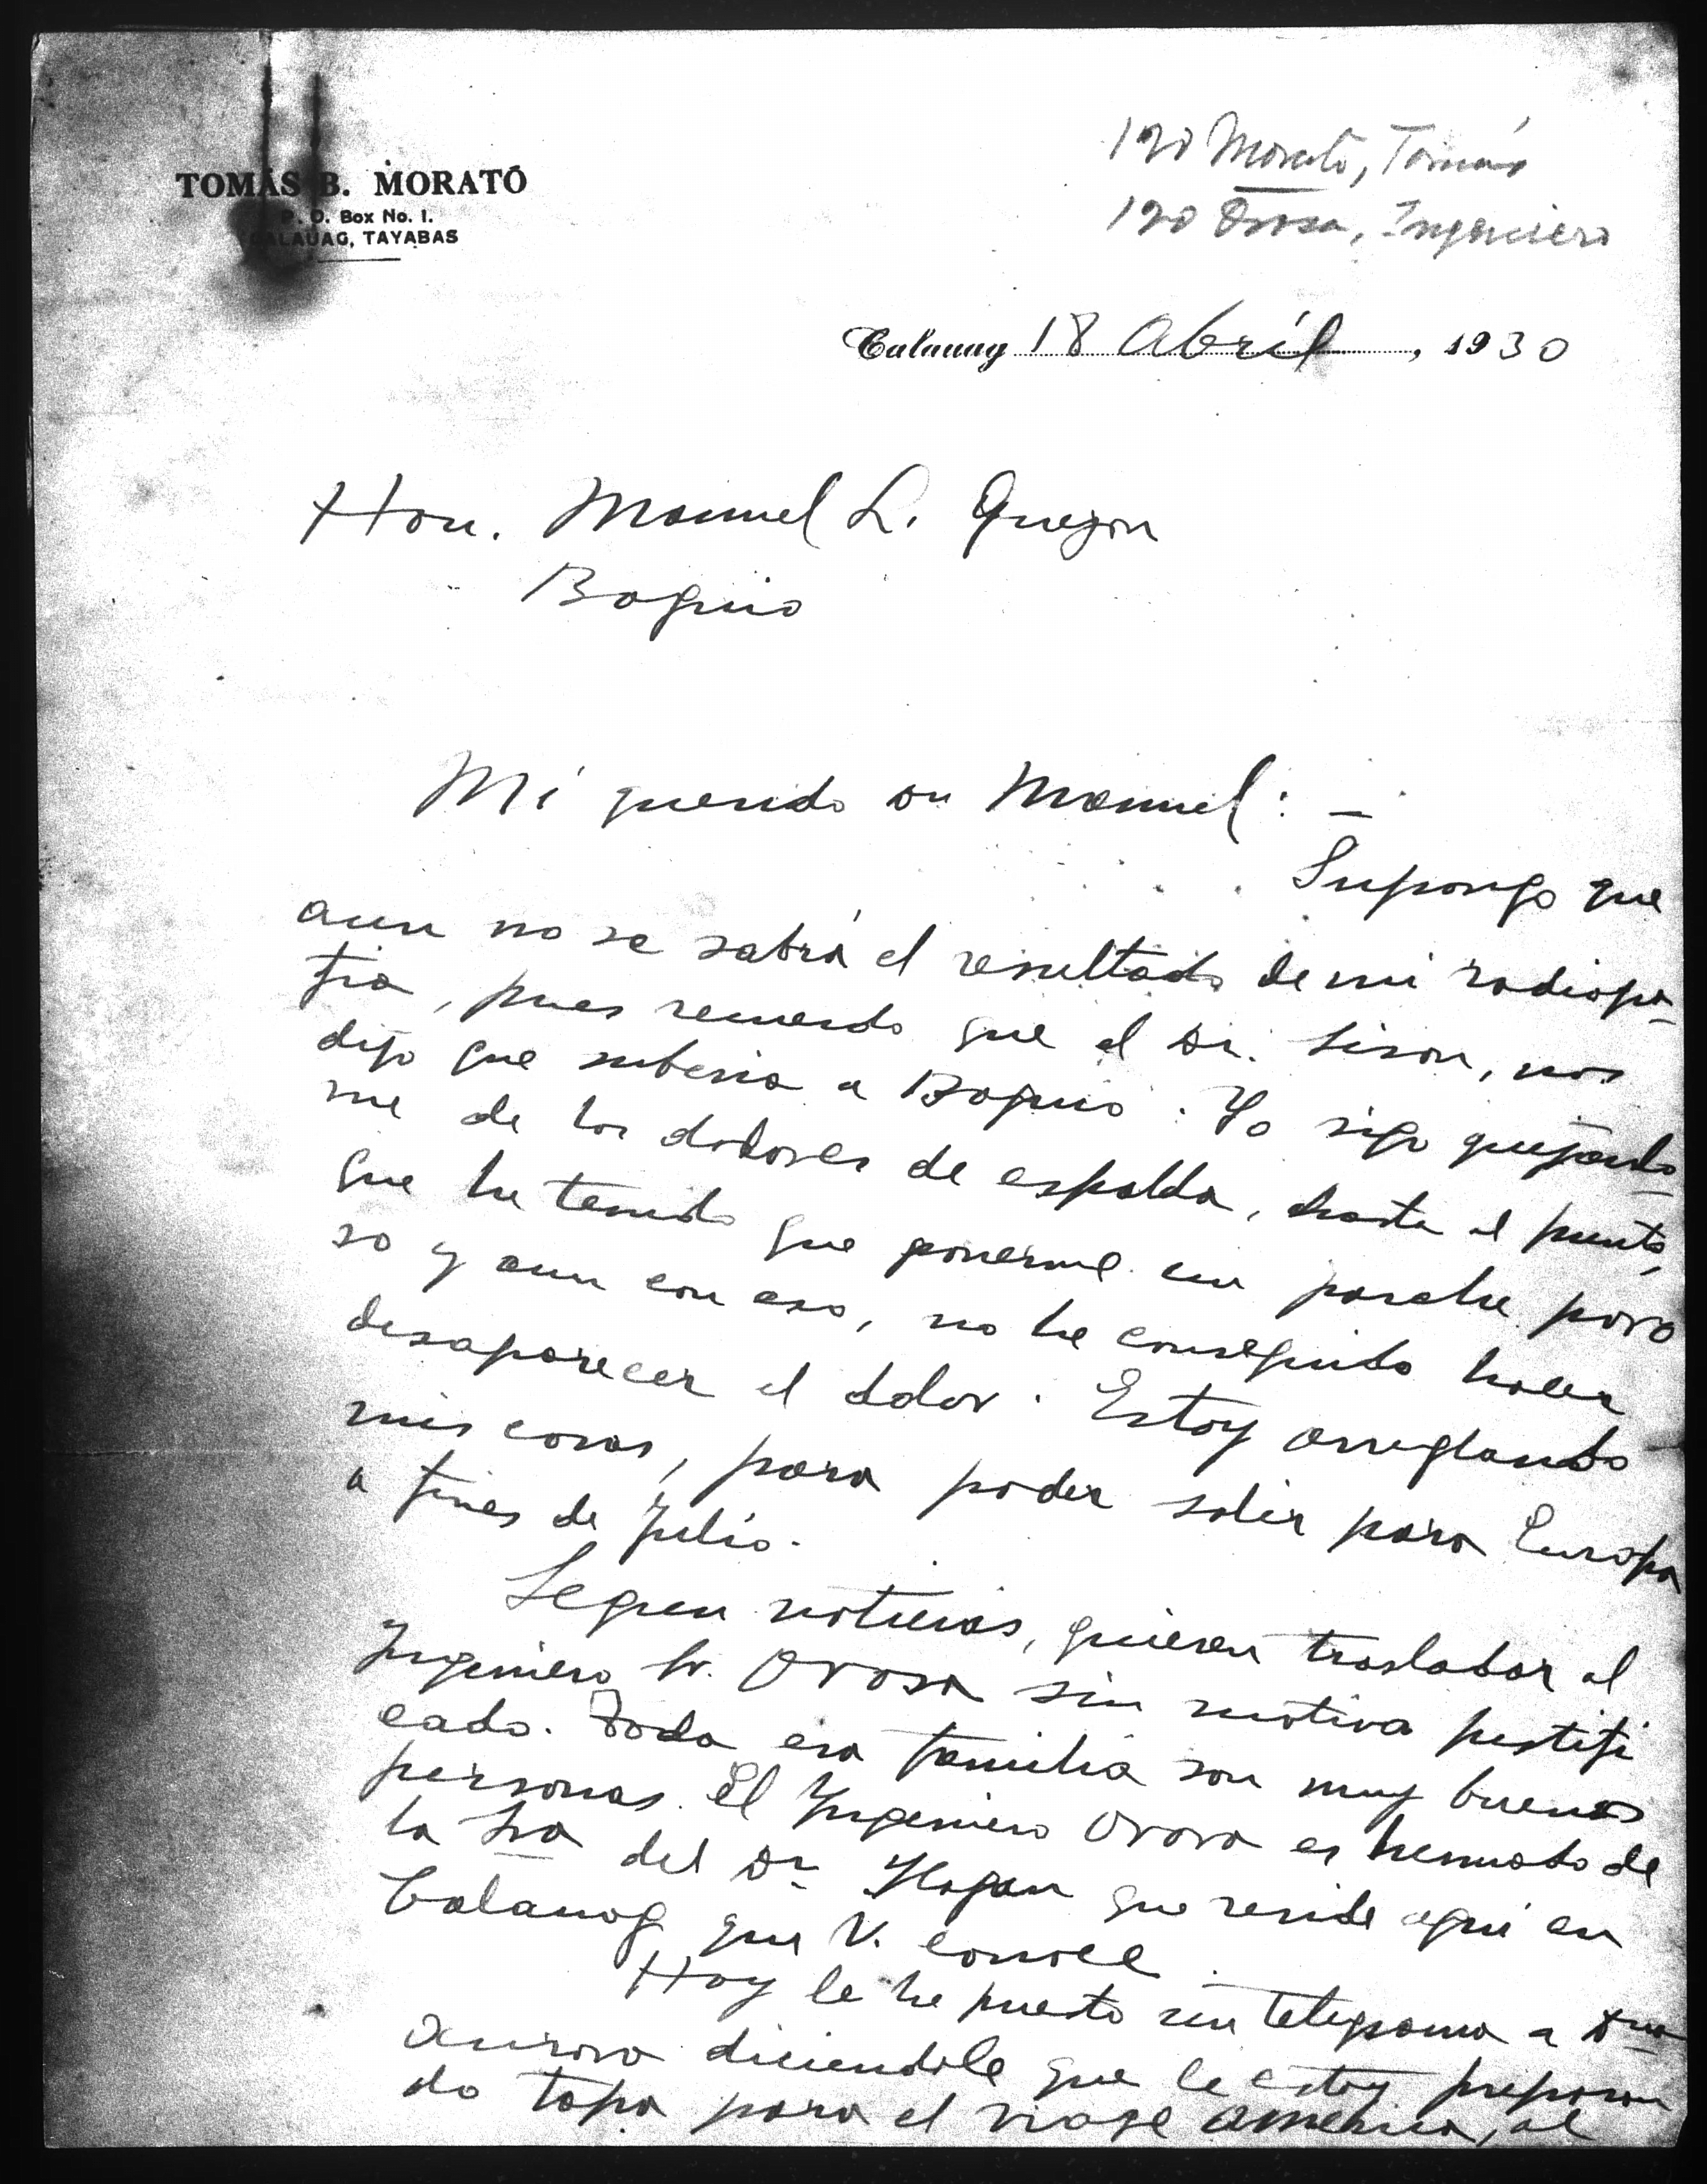 TOMÁS B. MORATÓ
P. O. Box No. 1.
CALAUAG, TAYABAS
190 Morató, Tomás
190 Orosa, Ingeniero
Calauag 18 Abríl, 1930
Hon. Manuel L. Quezon
Baguio
Mi querido Dn Manuel: —
Supongo que
aun no se sabrá el resultado de mi radiogra-
fia, pues recuerdo que el Dr. Sison, nos
dijo que subiria a Baguio. Yo sigo quejando-
me de los dolores de espalda, hasta el punto,
que he tenido que ponerme un parche poro
so y aun con eso, no he conseguido hacer
desaparecer el dolor. Estoy arreglando
mis cosas, para poder salir para Europa
a fines de Julio.
Segun noticias, quieren trasladar al
Ingeniero Sr. Orosa sin motivo justifi
cado. Toda esa familia son muy buenas
personas. El Ingeniero Orosa es hermano de
la Sra del Dr Ylagan que reside aqui en
Calauag que V. conoce.
Hoy le he puesto un telegrama a Dña
Aurora diciendole que le estoy preparan
do tapa para el viaje America, al